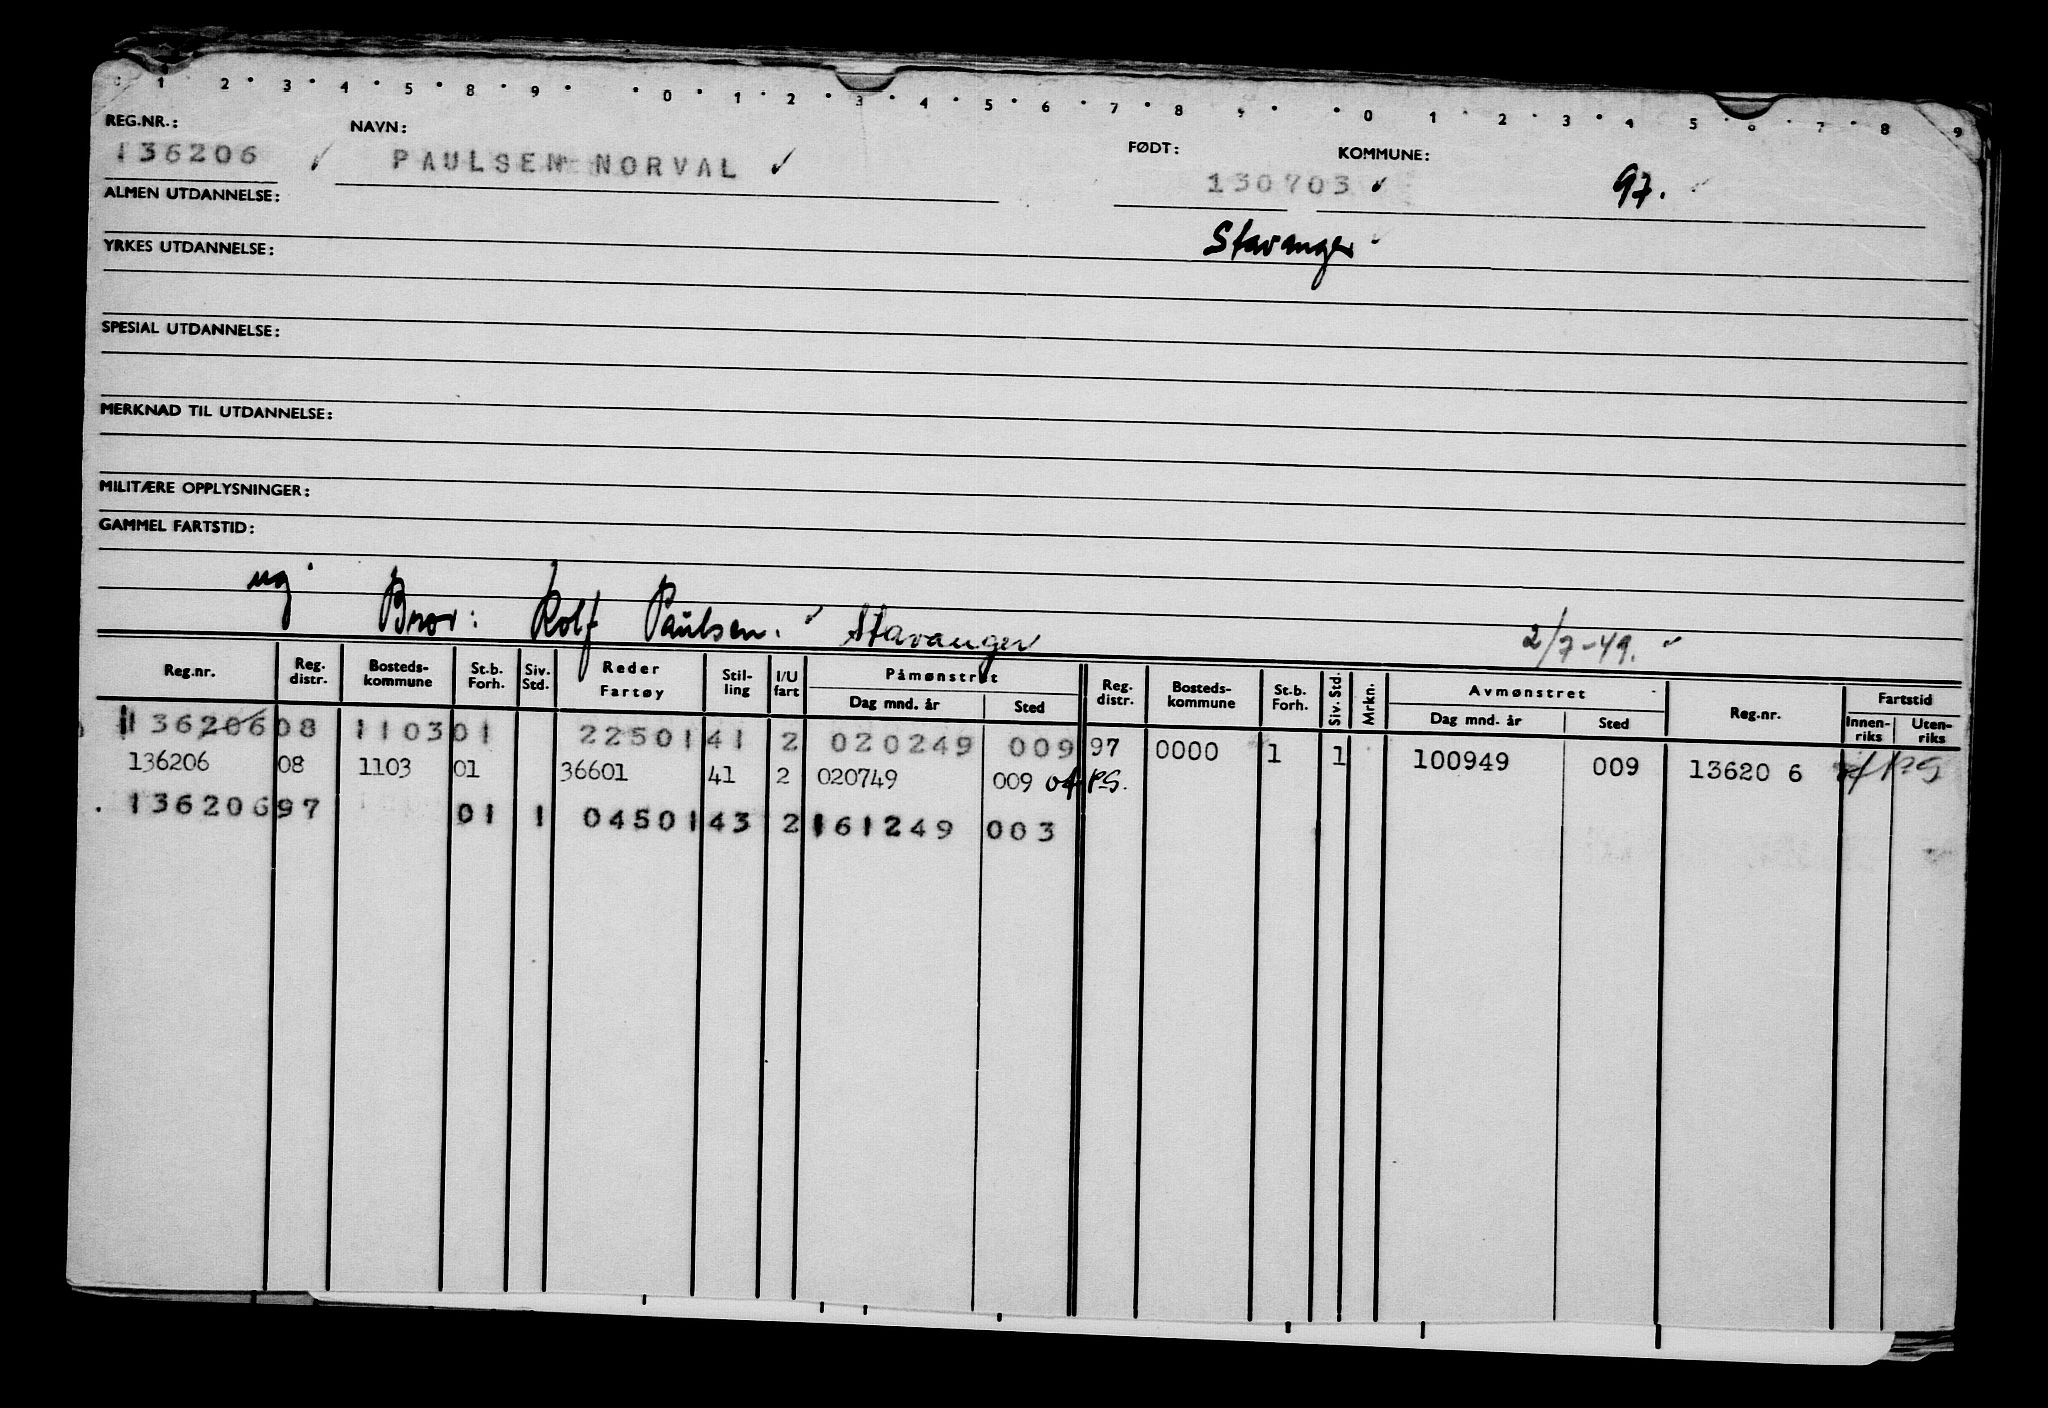 1 2 3 4 5 8 9 0 1 2 3 4 5 6 7 8 9 0 1 2 3 4 5 6 7 8 9
REG.NR.: NAVN: FØDT: KOMMUNE:
136206 PAULSEN NORVAL 130703 97.
ALMEN UTDANNELSE:
Stavanger
YRKES UTDANNELSE:
SPESIAL UTDANNELSE:
MERKNAD TIL UTDANNELSE:
MILITÆRE OPPLYSNINGER:
GAMMEL FARTSTID:
ug Bror: Rolf Paulsen. Stavanger 2/7-49.
Reg.nr. Reg. distr. Bosteds-kommune St.b. Forh. Siv. Std. Reder Fartøy Stil-ling I/U fart Påmønstret Dag mnd. år Sted Reg. distr. Bosteds-kommune St.b. Forh. Siv. Std. Mrkn. Avmønstret Dag mnd. år Sted Reg.nr. Fartstid Innen-riks Uten-riks
136206 08 1103 01 22501 41 2 020249 009 97 0000 1 1 100949 009 13620 6
136206 08 1103 01 36601 41 2 020749 009 of PS.
136206 97 01 1 04501 43 2 161249 003